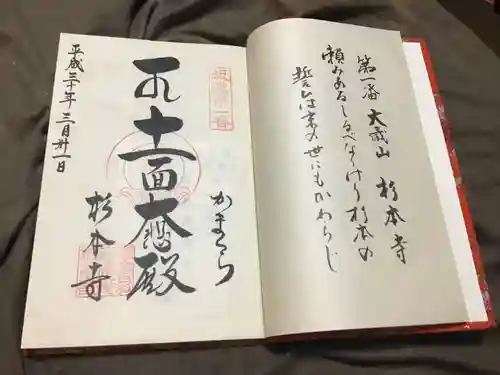 第一番 大蔵山 杉本寺
頼みあるしるべなりけり杉本の
誓ひは末の世にもかわらじ
かまくら
十一面大悲殿
杉本寺
平成三十年三月卅一日